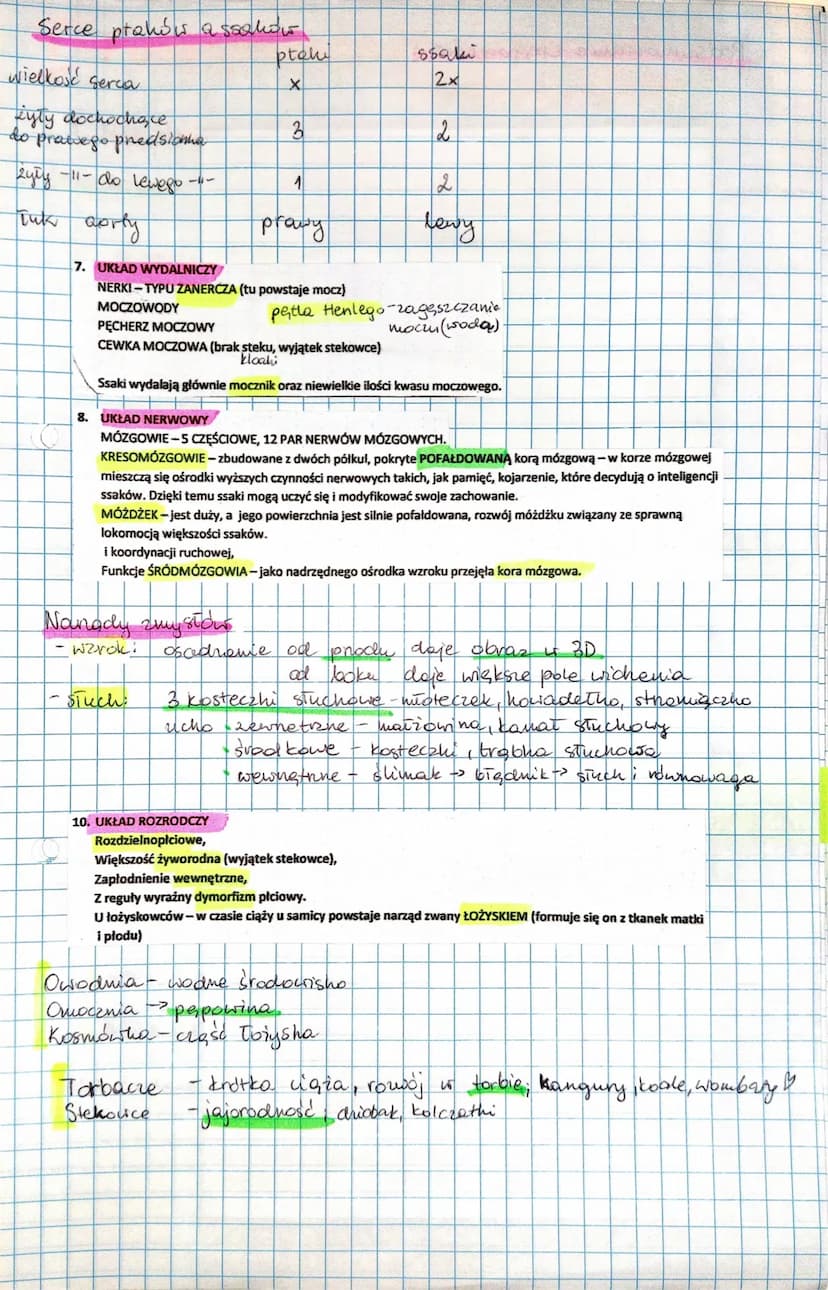 Serce ptaków a ssaków
ptaki ssaki
wielkość serca x 2x
żyły dochodzące
do prawego przedsionka 3 2
żyły -11- do lewego -11- 1 2
Łuk aorty prawy lewy
7. UKŁAD WYDALNICZY
NERKI – TYPU ZANERCZA (tu powstaje mocz)
MOCZOWODY pętla Henlego - zagęszczanie
PĘCHERZ MOCZOWY moczu (woda)
CEWKA MOCZOWA (brak steku, wyjątek stekowce)
kloaki
Ssaki wydalają głównie mocznik oraz niewielkie ilości kwasu moczowego.
8. UKŁAD NERWOWY
MÓZGOWIE – 5 CZĘŚCIOWE, 12 PAR NERWÓW MÓZGOWYCH.
KRESOMÓZGOWIE – zbudowane z dwóch półkul, pokryte POFAŁDOWANĄ korą mózgową – w korze mózgowej
mieszczą się ośrodki wyższych czynności nerwowych takich, jak pamięć, kojarzenie, które decydują o inteligencji
ssaków. Dzięki temu ssaki mogą uczyć się i modyfikować swoje zachowanie.
MÓŻDŻEK – jest duży, a jego powierzchnia jest silnie pofałdowana, rozwój móżdżku związany ze sprawną
lokomocją większości ssaków.
i koordynacji ruchowej,
Funkcje ŚRÓDMÓZGOWIA – jako nadrzędnego ośrodka wzroku przejęła kora mózgowa.
Narządy zmysłów
- wzrok: osadzenie od przodu daje obraz w 3D
od boku daje większe pole widzenia
- słuch: 3 kosteczki słuchowe - młoteczek, kowadełko, strzemiączko
ucho • zewnętrzne - małżowina, kanał słuchowy
• środkowe - kosteczki, trąbka słuchowa
• wewnętrzne - ślimak -> błędnik -> słuch i równowaga
10. UKŁAD ROZRODCZY
Rozdzielnopłciowe,
Większość żyworodna (wyjątek stekowce),
Zapłodnienie wewnętrzne,
Z reguły wyraźny dymorfizm płciowy.
U łożyskowców – w czasie ciąży u samicy powstaje narząd zwany ŁOŻYSKIEM (formuje się on z tkanek matki
i płodu)
Owodnia - wodne środowisko
Omocznia -> pępowina
Kosmówka - część łożyska
Torbacze - krótka ciąża, rozwój w torbie; kangury, koale, wombaty ♡
Stekowce - jajorodność; dziobak, kolczatki